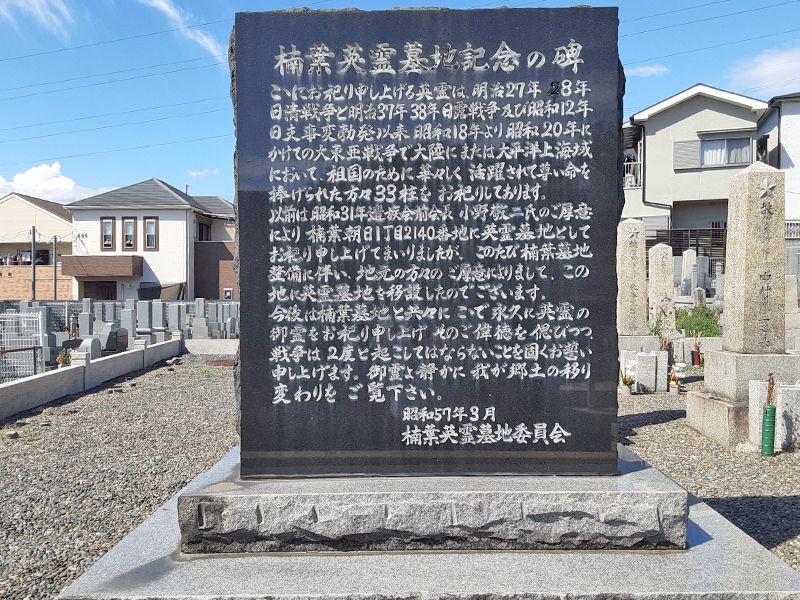 楠葉英霊墓地記念の碑
こゝにお祀り申し上げる英霊は、明治27年28年
日清戦争と明治37年38年日露戦争及び昭和12年
日支事変勃発以来昭和18年より昭和20年に
かけての大東亜戦争で大陸にまたは太平洋上海域
において、祖国のために華々しく活躍されて尊い命を
捧げられた方々33柱をお祀りしてあります。
以前は昭和31年遺族会前会長小野敬二氏のご厚意
により楠葉朝日1丁目2140番地に英霊墓地として
お祀り申し上げてまいりましたが、このたび楠葉墓地
整備に伴い、地元の方々のご厚意によりまして、この
地に英霊墓地を移設したのでございます。
今後は楠葉墓地と共々にこゝで永久に英霊の
御霊をお祀り申し上げそのご偉徳を偲びつつ
戦争は2度と起こしてはならないことを固くお誓い
申し上げます。御霊よ静かに我が郷土の移り
変わりをご覧下さい。
昭和57年3月
楠葉英霊墓地委員会